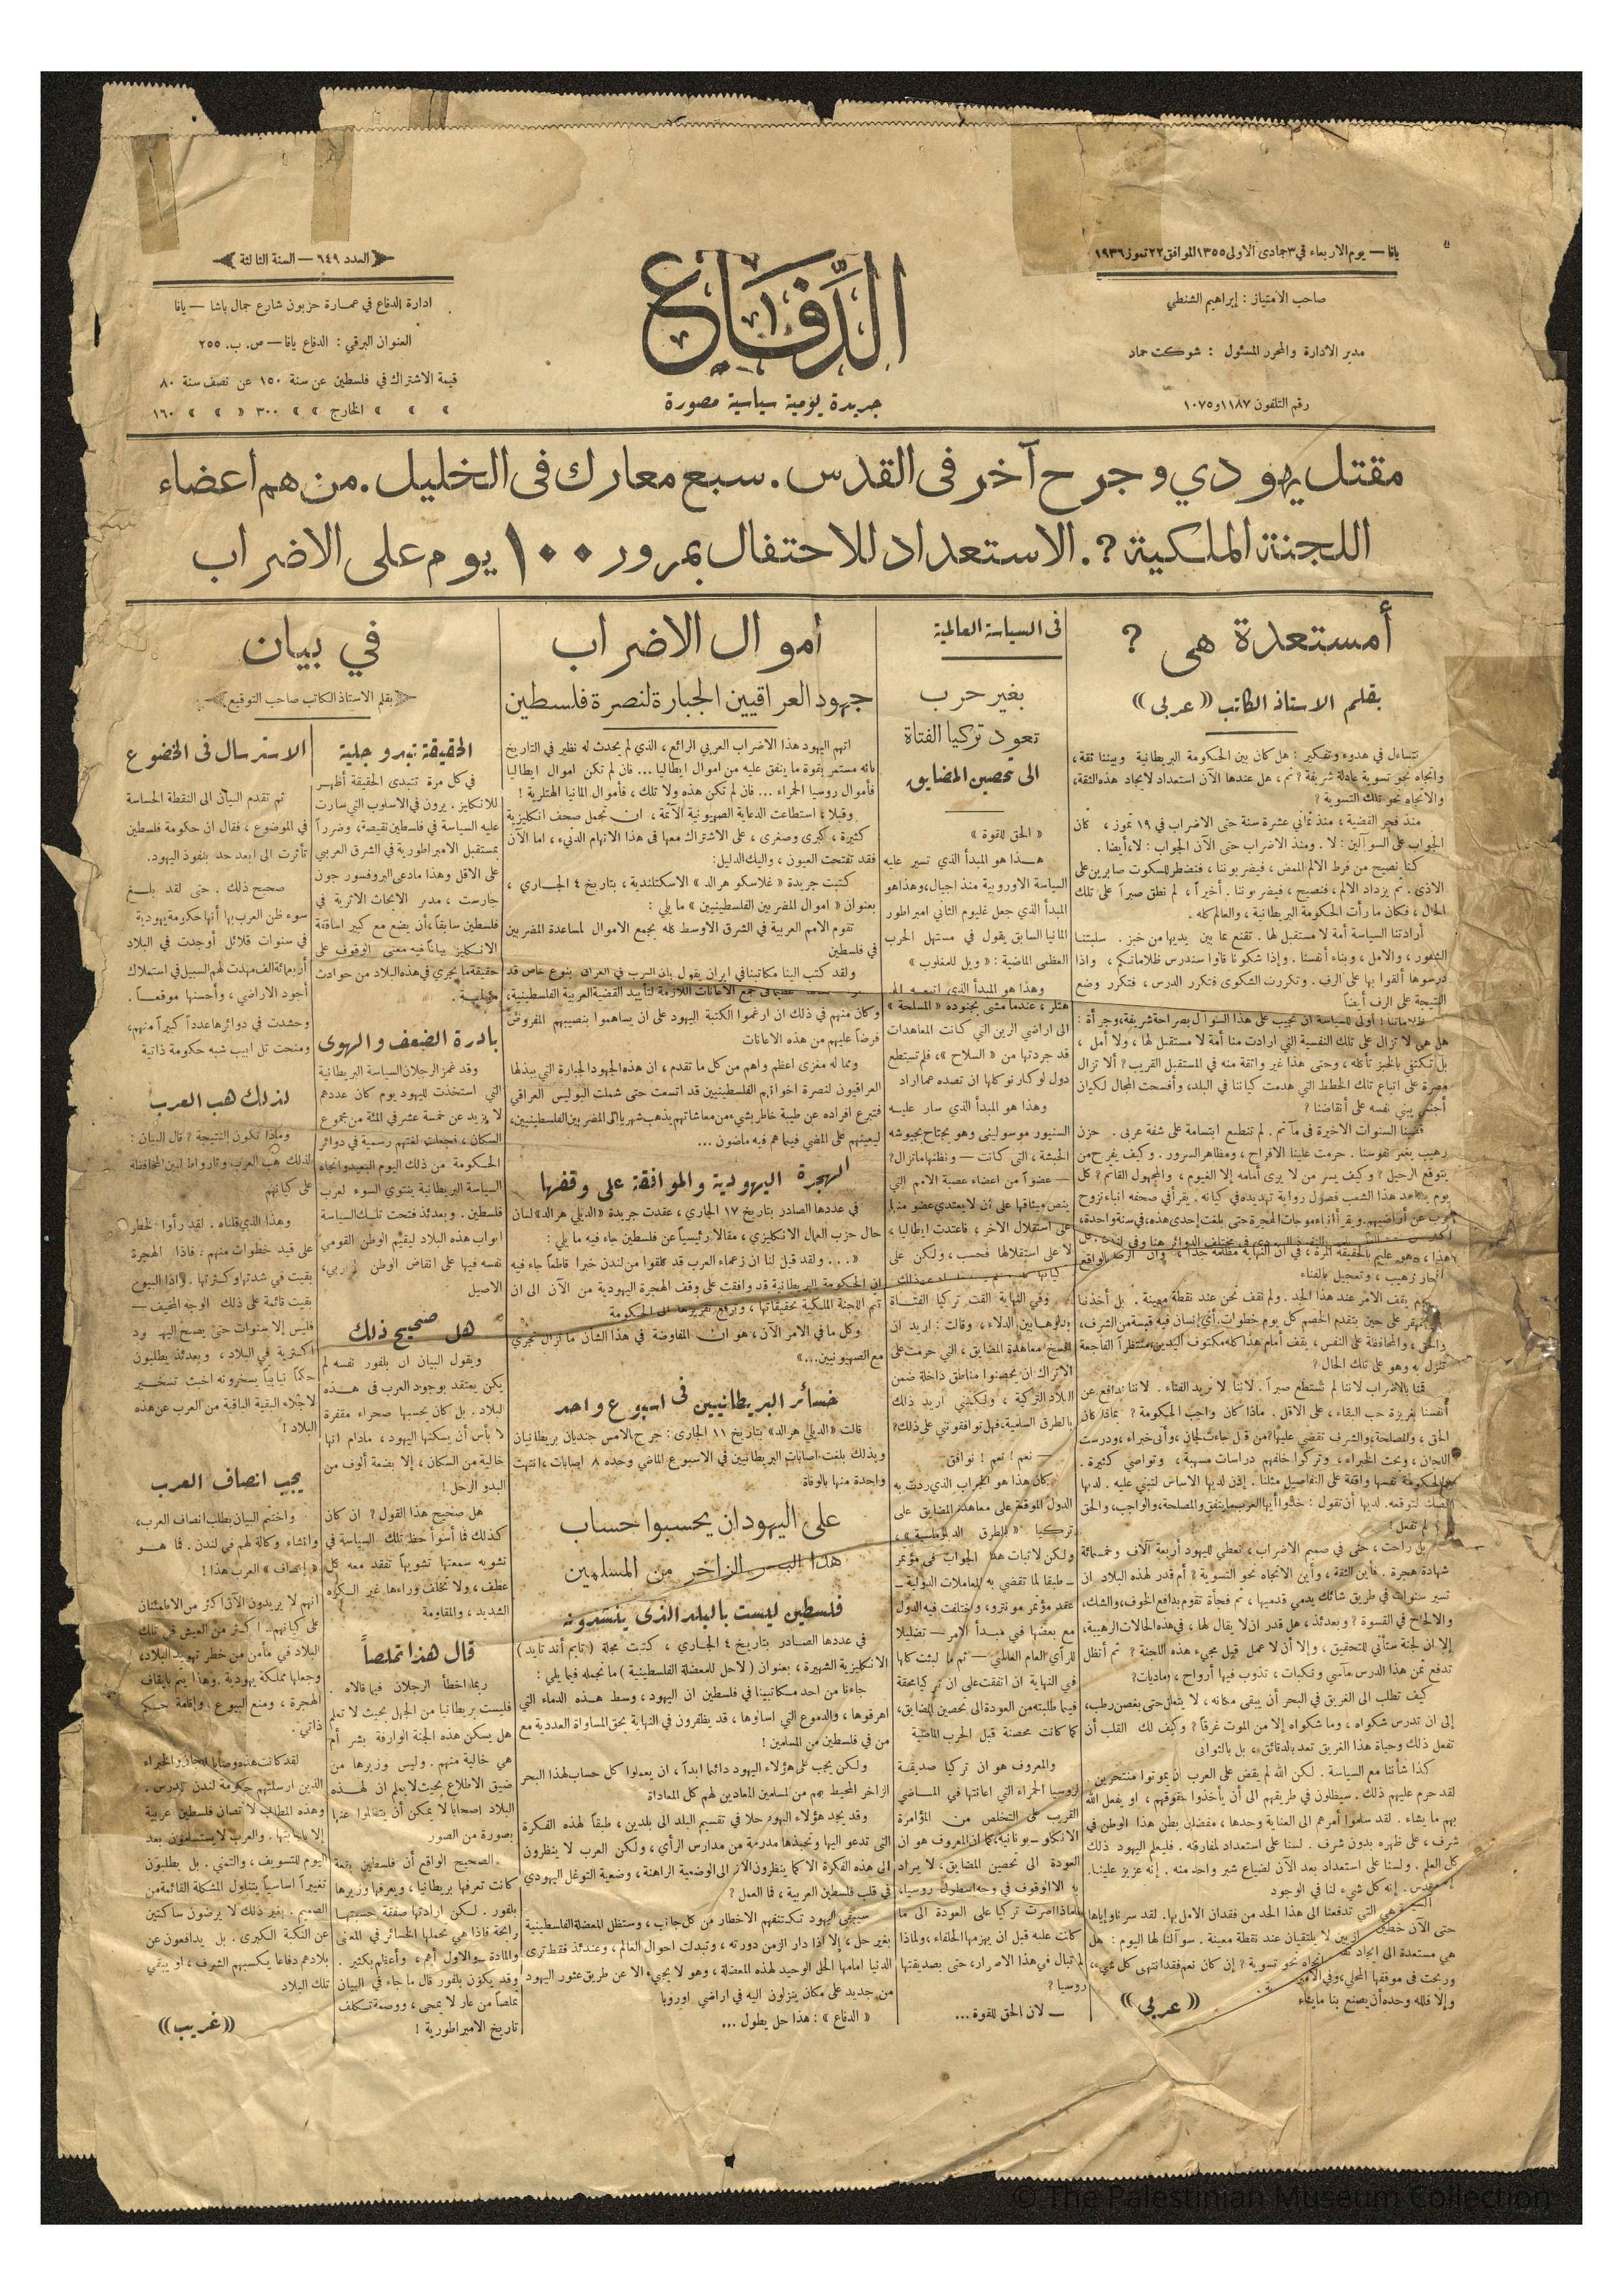 يافا — يوم الاربعاء في ٣ جمادى الاولى ١٣٥٥ الموافق ٢٢ تموز ١٩٣٦
صاحب الامتياز : إبراهيم الشنطي
مدير الادارة والمحرر المسئول : شوكت حماد
رقم التلفون ١١٨٧ و ١٠٧٥
الدفاع
جريدة يومية سياسية مصورة
العدد ٦٤٩ — السنة الثالثة
ادارة الدفاع في عمارة حزبون شارع جمال باشا — يافا
العنوان البرقي : الدفاع يافا — ص. ب. ٢٥٥
قيمة الاشتراك في فلسطين عن سنة ١٥٠ عن نصف سنة ٨٠
» » » الخارج » » ٣٠٠ » » » ١٦٠
مقتل يهودي وجرح آخر فى القدس . سبع معارك فى الخليل . من هم اعضاء
اللجنة الملكية ؟. الاستعداد للاحتفال بمرور ١٠٠ يوم على الاضراب
أمستعدة هى ؟
بقلم الاستاذ الكاتب «عربى»
نتساءل في هدوء وتفكير : هل كان بين الحكومة البريطانية وبيننا ثقة،
واتجاه نحو تسوية عادلة شريفة ؟ ثم ، هل عندها الآن استعداد لايجاد هذه الثقة،
والاتجاه نحو تلك التسوية ؟
منذ فجر القضية ، منذ ثماني عشرة سنة حتى الاضراب في ١٩ تموز ، كان
الجواب على السوآلين : لا . ومنذ الاضراب حتى الآن الجواب : لا، أيضا .
كنا نصيح من فرط الالم الممض ، فيضربوننا ، فنضطر للسكوت صابرين على
الاذى . ثم يزداد الالم ، فنصيح ، فيضربوننا . أخيراً ، لم نطق صبراً على تلك
الحال ، فكان ما رأت الحكومة البريطانية ، والعالم كله .
أرادتنا السياسة أمة لا مستقبل لها . تقنع بما بين يديها من خبز . سلبتنا
الشعور ، والامل ، وبناء أنفسنا . وإذا شكونا قالوا سندرس ظلاماتكم ، واذا
درسوها ألقوا بها على الرف . وتكررت الشكوى فتكرر الدرس ، فتكرر وضع
النتيجة على الرف أيضاً
ظلاماتنا ! أولى للسياسة ان تجيب على هذا السوآل بصراحة شريفة، وجرأة :
هل هي لا تزال على تلك النفسية التي ارادت منا أمة لا مستقبل لها ، ولا أمل ،
بل تكتفي بالخبز تأكله ، وحتى هذا غير واثقة منه في المستقبل القريب ؟ ألا تزال
مصرة على اتباع تلك الخطط التي هدمت كياننا في البلد، وأفسحت المجال لكيان
أجنبي يبني نفسه على أنقاضنا ؟
قضينا السنوات الاخيرة فى مآتم . لم تنطبع ابتسامة على شفة عربى . حزن
رهيب يغمر نفوسنا . حرمت علينا الافراح ، ومظاهر السرور . وكيف يفرح من
يتوقع الرحيل ؟ وكيف يسر من لا يرى أمامه إلا الغيوم ، والمجهول القاتم ؟ كل
يوم يشاهد هذا الشعب فصول رواية تهديده في كيانه . يقرأ في صحفه انباء نزوح
عرب عن أراضيهم . ويقرأ انباء موجات الهجرة حتى بلغت إحدى هذه، في سنة واحدة،
انجاز رهيب ، وتعجيل بالفناء
لم يقف الامر عند هذا الحد . ولم نقف نحن عند نقطة معينة . بل أخذنا
والحق ، والمحافظة على النفس ، يقف أمام هذا كله مكتوف اليدين منتظراً الفاجعة
تنزل به وهو على تلك الحال ؟
قمنا بالاضراب لاننا لم نستطع صبراً . لاننا لا نريد الفناء . لاننا ندافع عن
أنفسنا بغريزة حب البقاء ، على الاقل . ماذا كان واجب الحكومة ؟ بماذا كان
الحق ، والمصلحة، والشرف تقضي عليها؟ من قبل جاءت لجان ، وأتى خبراء ، ودرست
اللجان ، وبحث الخبراء ، وتركوا خلفهم دراسات مسهبة ، وتواصي كثيرة .
والحكومة نفسها واقفة على التفاصيل مثلنا . إذن لديها الاساس لتبني عليه . لديها
الصك لتوقعه. لديها أن تقول : خذوا أيها العرب ما يتفق والمصلحة، والواجب، والحق
لم تفعل !
بل راحت ، حتى في صميم الاضراب ، تعطي لليهود أربعة آلاف وخمسمائة
شهادة هجرة . فأين الثقة ، وأين الاتجاه نحو التسوية ؟ أم قدر لهذه البلاد ان
تسير سنوات في طريق شائك يدمي قدميها ، ثم فجأة تقوم بدافع الخوف، والشك،
والالحاح في القسوة ؟ وبعدئذ ، هل قدر ان لا يقال لها ، في هذه الحالات الرهيبة،
إلا ان لجنة ستأتي للتحقيق ، وإلا أن لا عمل قبل مجيء هذه اللجنة ؟ ثم أتظل
تدفع ثمن هذا الدرس مآسي ونكبات ، تذوب فيها أرواح ، وماديات؟
كيف تطلب الى الغريق في البحر أن يبقى مكانه ، لا يتعلق حتى بغصن رطب،
إلى ان تدرس شكواه ، وما شكواه إلا من الموت غرقاً ؟ وكيف لك القلب أن
تفعل ذلك وحياة هذا الغريق تعد بالدقائق ، بل بالثوانى
كذا شأننا مع السياسة . لكن الله لم يقض على العرب ان يموتوا منتحرين .
لقد حرم عليهم ذلك . سيظلون في طريقهم الى أن يأخذوا حقوقهم ، او يفعل الله
بهم ما يشاء . لقد سلموا أمرهم الى العناية وحدها ، مفضلين بطن هذا الوطن في
شرف ، على ظهره بدون شرف . لسنا على استعداد لمفارقته . فليعلم اليهود ذلك
كل العلم . ولسنا على استعداد بعد الآن لضياع شبر واحد منه . إنه عزيز علينا.
إنه مقدس . إنه كل شيء لنا في الوجود
السياسة هي التي تدفعنا الى هذا الحد من فقدان الامل بها . لقد سرنا وإياها
حتى الآن خطين لا يلتقيان عند نقطة معينة . سوآلنا لها اليوم : هل
هي مستعدة الى ايجاد ثقة اتجاه نحو تسوية ؟ إن كان نعم فقد انتهى كل شيء،
وإلا فلله وحده أن يصنع بنا ما يشاء
«عربي»
فى السياسة العالمية
بغير حرب
تعود تركيا الفتاة
الى تحصين المضايق
« الحق للقوة »
هذا هو المبدأ الذي تسير عليه
السياسة الاوروبية منذ اجيال، وهذا هو
المبدأ الذي جعل غليوم الثاني امبراطور
المانيا السابق يقول في مستهل الحرب
العظمى الماضية : « ويل للمغلوب »
هتلر ، عندما مشى بجنوده « المسلحة »
الى اراضي الرين التي كانت المعاهدات
قد جردتها من « السلاح »، فلم تستطع
دول لوكارنو كلها ان تصده عما اراد
وهذا هو المبدأ الذي سار عليه
السنيور موسوليني وهو يجتاح بجيوشه
الحبشة ، التى كانت — ونظنها ما تزال؟
— عضواً من اعضاء عصبة الامم التي
ينص ميثاقها على أن لا يعتدي عضو منها
على استقلال الآخر ، فاعتدت ايطاليا ،
لا على استقلالها فحسب ، ولكن على
وفي النهاية القت تركيا الفتاة
بدلوها بين الدلاء ، وقالت : اريد ان
افسخ معاهدة المضايق ، التي حرمت على
الاتراك ان يحصنوا مناطق داخلة ضمن
البلاد التركية ، ولكنني اريد ذلك
بالطرق السلمية، فهل توافقونني على ذلك؟
— نعم ! نعم ! نوافق
كان هذا هو الجواب الذي ردت به
الدول الموقعة على معاهدة المضايق على
تركيا « الطرق الدبلوماسية » ،
ولكن لاثبات هذا الجواب فى مؤتمر
— طبقا لما تقضي به المعاملات الدولية —
عقد مؤتمر مونترو، واختلفت فيه الدول
مع بعضها في مبدأ الامر — تضليلا
للرأي العام العالمي — ثم ما لبثت كلها
في النهاية ان اتفقت على ان تركيا محقة
فيما طلبته من العودة الى تحصين المضايق،
كما كانت محصنة قبل الحرب الماضية
والمعروف هو ان تركيا صديقة
لروسيا الحمراء التي اعانتها في الماضي
القريب على التخلص من المؤامرة
الانكلو — يونانية، كما ان المعروف هو ان
العودة الى تحصين المضايق، لا يراد
به الا الوقوف في وجه اسطول روسيا،
فلماذا اصرت تركيا على العودة الى ما
كانت عليه قبل ان يهزمها الحلفاء ، ولماذا
لم تبال في هذا الاصرار، حتى بصديقتها
روسيا ؟
— لان الحق للقوة ...
اموال الاضراب
جهود العراقيين الجبارة لنصرة فلسطين
اتهم اليهود هذا الاضراب العربي الرائع ، الذي لم يحدث له نظير في التاريخ
بانه مستمر بقوة ما ينفق عليه من اموال ايطاليا ... فان لم تكن اموال ايطاليا
فأموال روسيا الحمراء ... فان لم تكن هذه ولا تلك ، فأموال المانيا الهتلرية !
وقبلا ، استطاعت الدعاية الصهيونية الآثمة ، ان تجمل صحف انكليزية
كثيرة ، كبرى وصغرى ، على الاشتراك معها فى هذا الاتهام الدنيء ، اما الآن
فقد تفتحت العيون ، واليك الدليل:
كتبت جريدة « غلاسكو هرالد » الاسكتلندية ، بتاريخ ٤ الجاري ،
بعنوان « اموال المضربين الفلسطينيين » ما يلي :
تقوم الامم العربية في الشرق الاوسط كله بجمع الاموال لمساعدة المضربين
في فلسطين
ولقد كتب الينا مكاتبنا في ايران يقول بان العرب في العراق بنوع خاص قد
جمع الاعانات اللازمة لتأييد القضية العربية الفلسطينية،
وكان منهم في ذلك ان ارغموا الكتبة اليهود على ان يساهموا بنصيبهم المفروض
فرضاً عليهم من هذه الاعانات
ومما له مغزى اعظم واهم من كل ما تقدم ، ان هذه الجهود الجبارة التي يبذلها
العراقيون لنصرة اخوانهم الفلسطينيين قد اتسعت حتى شملت البوليس العراقي
فتبرع افراده عن طيبة خاطر بشيء من معاشاتهم يذهب شهريا الى المضربين الفلسطينيين،
ليعينهم على المضي فيما هم فيه ماضون ...
الهجرة اليهودية والموافقة على وقفها
في عددها الصادر بتاريخ ١٧ الجاري ، عقدت جريدة «الديلي هرالد» لسان
حال حزب العمال الانكليزي ، مقالا رئيسياً عن فلسطين جاء فيه ما يلي :
« ... ولقد قيل لنا ان زعماء العرب قد تلقوا من لندن خبرا قاطعاً جاء فيه
ان الحكومة البريطانية قد وافقت على وقف الهجرة اليهودية من الآن الى ان
تتم اللجنة الملكية تحقيقاتها ، وترفع تقريرها الى الحكومة
وكل ما في الامر الآن ، هو ان المفاوضة في هذا الشأن ما تزال تجري
مع الصهيونيين...»
خسائر البريطانيين فى اسبوع واحد
قالت «الديلي هرالد» بتاريخ ١١ الجارى : جرح بالامس جنديان بريطانيان
وبذلك بلغت اصابات البريطانيين في الاسبوع الماضي وحده ٨ اصابات ، انتهت
واحدة منها بالوفاة
على اليهود ان يحسبوا حساب
هذا البحر الزاخر من المسلمين
فلسطين ليست بالبلد الذى ينشدونه
في عددها الصادر بتاريخ ٤ الجاري ، كتبت مجلة ( تايم أند تايد )
الانكليزية الشهيرة ، بعنوان ( لاحل للمعضلة الفلسطينية ) ما نجمله فيما يلي :
جاءنا من احد مكاتبينا في فلسطين ان اليهود ، وسط هذه الدماء التي
اهرقوها ، والدموع التي اسالوها ، قد يظفرون في النهاية بحق المساواة العددية مع
من في فلسطين من المسلمين !
ولكن يجب على هؤلاء اليهود دائما ابداً ، ان يعملوا كل حساب لهذا البحر
الزاخر المحيط بهم من المسلمين المعادين لهم كل المعاداة
وقد يجد هؤلاء اليهود حلا في تقسيم البلد الى بلدين ، طبقاً لهذه الفكرة
التى تدعو اليها وتحبذها مدرسة من مدارس الرأي ، ولكن العرب لا ينظرون
الى هذه الفكرة الا كما ينظرون الآن الى الوضعية الراهنة ، وضعية التوغل اليهودي
في قلب فلسطين العربية ، فما العمل ؟
سيبقى اليهود تكتنفهم الاخطار من كل جانب ، وستظل المعضلة الفلسطينية
بغير حل ، إلا اذا دار الزمن دورته ، وتبدلت احوال العالم ، وعندئذ فقط ترى
الدنيا امامها الحل الوحيد لهذه المعضلة ، وهو لا يجيء الا عن طريق عثور اليهود
من جديد على مكان ينزلون اليه في اراضي اوروبا
« الدفاع » : هذا حل يطول ...
في بيان
بقلم الاستاذ الكاتب صاحب التوقيع
الحقيقة تبدو جلية
في كل مرة تتبدى الحقيقة أظهر
للانكليز . يرون في الاسلوب التي سارت
عليه السياسة في فلسطين نقيصة ، وضرراً
بمستقبل الامبراطورية في الشرق العربي
على الاقل وهذا ما دعى البروفسور جون
جارست ، مدير الابحاث الاثرية في
فلسطين سابقاً ، أن يضع مع كبير اساقفة
الانكليز بياناً فيه معنى الوقوف على
حقيقة ما يجري في هذه البلاد من حوادث
بادرة الضعف والهوى
وقد غمز الرجلان السياسة البريطانية
التي استخذت لليهود يوم كان عددهم
لا يزيد عن خمسة عشر في المئة من مجموع
السكان ، فجعلت لغتهم رسمية في دوائر
الحكومة من ذلك اليوم البعيد واتجاه
السياسة البريطانية ينتوي السوء لعرب
فلسطين . وبعدئذ فتحت تلك السياسة
ابواب هذه البلاد ليقيم الوطن القومي
نفسه فيها على انقاض الوطن العربي،
الاصيل
هل صحيح ذلك
ويقول البيان ان بلفور نفسه لم
يكن يعتقد بوجود العرب فى هذه
البلاد . بل كان يحسبها صحراء مقفرة
لا بأس أن يسكنها اليهود ، مادام انها
خالية من السكان ، إلا بضعة ألوف من
البدو الرحل !
هل صحيح هذا القول ؟ ان كان
كذلك فما أسوأ حظ تلك السياسة في
تشويه سمعتها تشويهاً تفقد معه كل
عطف ، ولا تخلف وراءها غير الكره
الشديد ، والمقاومة
قال هذا تملصاً
ربما اخطأ الرجلان فيما قالاه .
فليست بريطانيا من الجهل بحيث لا تعلم
هل يسكن هذه الجنة الوارفة بشر أم
هي خالية منهم . وليس وزيرها من
ضيق الاطلاع بحيث لا يعلم ان لهذه
البلاد اصحابا لا يمكن أن يتخلوا عنها
بصورة من الصور
الصحيح الواقع أن فلسطين بقعة
كانت تعرفها بريطانيا ، ويعرفها وزيرها
بلفور . لكن ارادتها صفقة حسبتها
رابحة فاذا هي تحملها الخسائر في المعنى
والمادة — والاول أهم ، وأعظم بكثير .
وقد يكون بلفور قال ما جاء في البيان
تملصاً من عار لا يمحى ، ووصمة تكلف
تاريخ الامبراطورية !
الاسترسال فى الخضوع
ثم تقدم البيان الى النقطة الحساسة
في الموضوع ، فقال ان حكومة فلسطين
تأثرت الى ابعد حد بنفوذ اليهود.
صحيح ذلك . حتى لقد بلغ
سوء ظن العرب بها أنها حكومة يهودية
في سنوات قلائل أوجدت في البلاد
أربعمائة الف مهدت لهم السبيل في استملاك
أجود الاراضي ، وأحسنها موقعاً .
وحشدت في دوائرها عدداً كبيراً منهم ،
ومنحت تل ابيب شبه حكومة ذاتية
لذلك هب العرب
وماذا تكون النتيجة ؟ قال البيان :
لذلك هب العرب وثاروا طالبين المحافظة
على كيانهم
وهذا الذي قلناه . لقد رأوا الخطر
على قيد خطوات منهم . فاذا الهجرة
بقيت في شدتها وكثرتها . واذا البيوع
بقيت قائمة على ذلك الوجه المخيف —
فليس إلا سنوات حتى يصبح اليهود
اكثرية في البلاد ، وبعدئذ يطلبون
حكماً نيابياً يسخرونه اخبث تسخير
لاجلاء البقية الباقية من العرب عن هذه
البلاد !
يجب انصاف العرب
واختتم البيان بطلب انصاف العرب،
وانشاء وكالة لهم في لندن . فما هو
« إنصاف » العرب هذا !
انهم لا يريدون الآن اكثر من الاطمئنان
على كيانهم . اكثر من العيش في تلك
البلاد في مأمن من خطر تهويد البلاد،
وجعلها مملكة يهودية . وهذا يتم بايقاف
الهجرة ، ومنع البيوع ، وإقامة حكم
ذاتي .
لقد كانت هذه وصايا اللجان والخبراء
الذين ارسلتهم حكومة لندن للدرس .
وهذه المطالب لا تصان فلسطين عربية
إلا باجابتها . والعرب لا يستسلمون بعد
اليوم للتسويف ، والتمني . بل يطلبون
تغييراً اساسياً يتناول المشكلة القائمة من
الصميم . بغير ذلك لا يرضون ساكتين
عن النكبة الكبرى . بل يدافعون عن
بلادهم دفاعا يكسبهم الشرف ، او يبقي
تلك البلاد
«غريب»
© The Palestinian Museum Collection